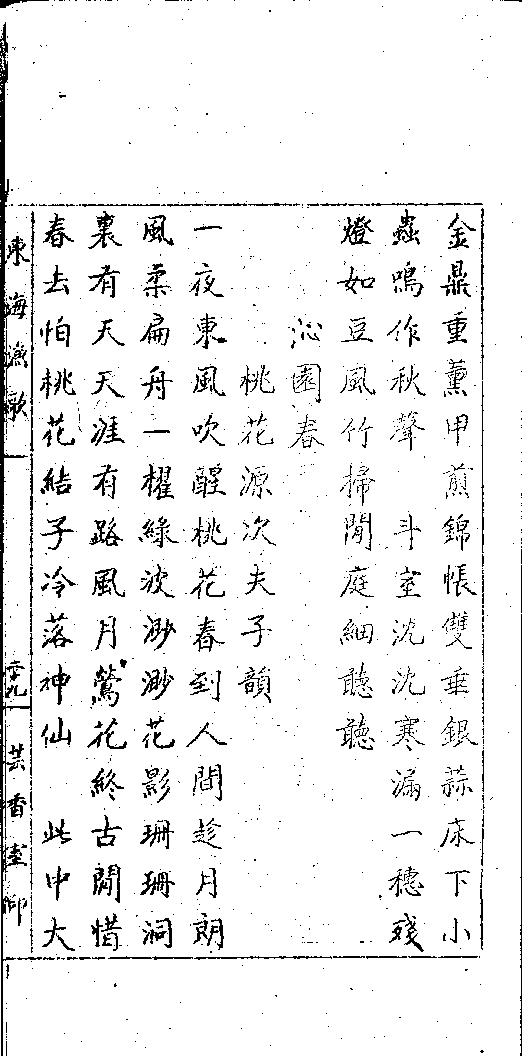 金鼎重薰甲煎錦帳雙垂銀蒜床下小
蟲鳴作秋聲　斗室沈沈寒漏一穗殘
燈如豆風竹掃閒庭細聽聽
沁園春
桃花源次夫子韻
一夜東風吹醒桃花春到人間趁月朗
風柔扁舟一櫂綠波渺渺花影珊珊洞
裏有天天涯有路風月鶯花終古閒惜
春去怕桃花結子冷落神仙　此中大
東海漁歌